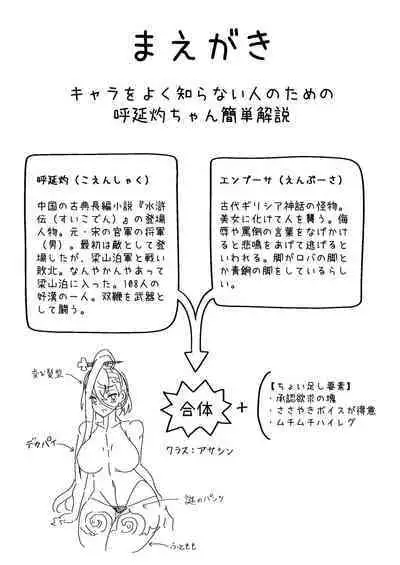 まえがき
キャラをよく知らない人のための
呼延灼ちゃん簡単解説
呼延灼（こえんしゃく）
中国の古典長編小説『水滸
伝（すいこでん）』の登場
人物。元・宋の官軍の将軍
（男）。最初は敵として登
場したが、梁山泊軍と戦い
敗北。なんやかんやあって
梁山泊に入った。108人の
好漢の一人。双鞭を武器と
して闘う。
エンプーサ（えんぷーさ）
古代ギリシア神話の怪物。
美女に化けて人を襲う。侮
辱や罵倒の言葉をなげかけ
ると悲鳴をあげて逃げると
いわれる。脚がロバの脚と
か青銅の脚をしているらし
い。
変な髪型
デカパイ
合体
クラス：アサシン
+
【ちょい足し要素】
・承認欲求の塊
・ささやきボイスが得意
・ムチムチハイレグ
謎のパンツ
ふともも